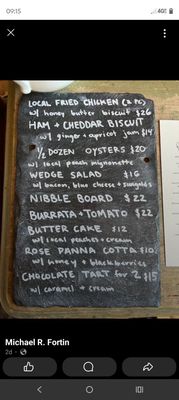 09:15
4G
LOCAL FRIED CHICKEN (2 PC)
w/ honey butter biscuit $26
HAM + CHEDDAR BISCUIT
w/ ginger + apricot jam $14
½ DOZEN OYSTERS $20
w/ local peach mignonette
WEDGE SALAD $16
w/ bacon, blue cheese + sungolds
NIBBLE BOARD $22
BURRATA + TOMATO $22
BUTTER CAKE $12
w/ local peaches + cream
ROSE PANNA COTTA $10
w/ honey + blackberries
CHOCOLATE TART for 2 $15
w/ caramel + cream
Michael R. Fortin
2d